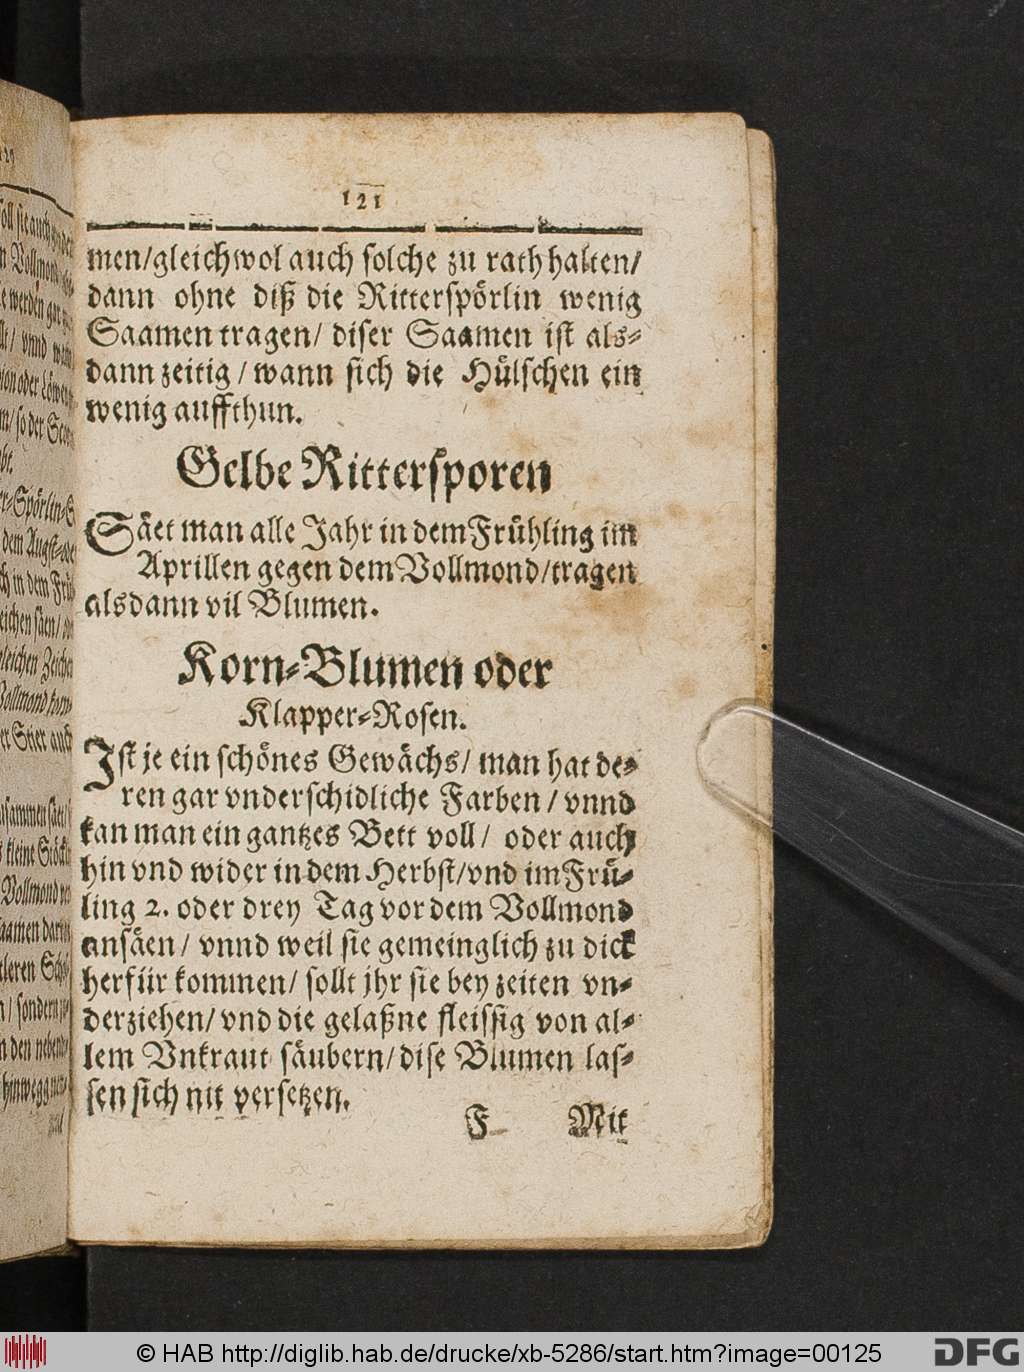 121
men/gleichwol auch solche zu rath halten/
dann ohne diß die Ritterspörlin wenig
Saamen tragen/ diser Saamen ist als-
dann zeitig/ wann sich die Hülschen ein
wenig auffthun.
Gelbe Rittersporen
Säet man alle Jahr in dem Frühling im
Aprillen gegen dem Vollmond/tragen
alsdann vil Blumen.
Korn-Blumen oder
Klapper-Rosen.
Ist je ein schönes Gewächs/ man hat de-
ren gar vnderschidliche Farben/ vnnd
kan man ein gantzes Bett voll/ oder auch
hin vnd wider in dem Herbst/vnd im Frü-
ling 2. oder drey Tag vor dem Vollmond
ansäen/ vnnd weil sie gemeinglich zu dick
herfür kommen/ sollt jhr sie bey zeiten vn-
derziehen/ vnd die gelaßne fleissig von al-
lem Vnkraut säubern/ dise Blumen las-
sen sich nit versetzen.
F Mit
© HAB http://diglib.hab.de/drucke/xb-5286/start.htm?image=00125
DFG